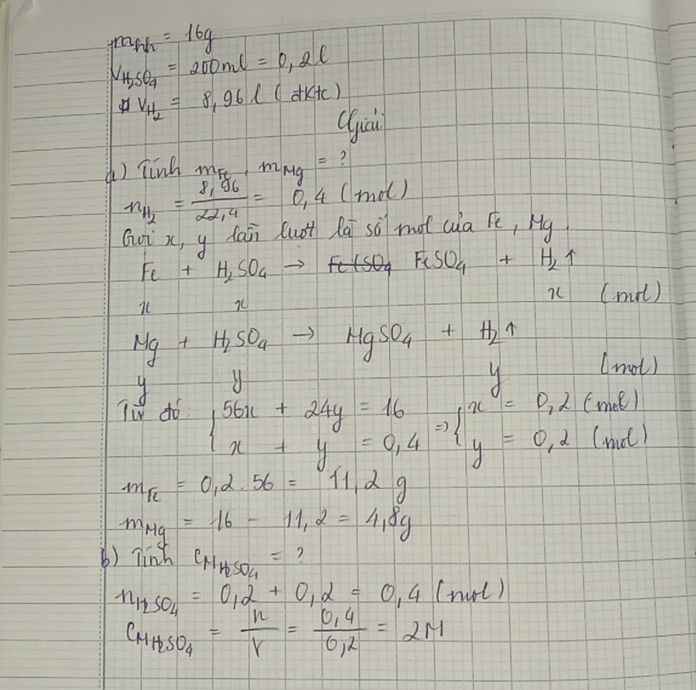 m hh = 16g
V H₂SO₄ = 200ml = 0,2l
V H₂ = 8,96 l (đktc)
Giải
a) Tính m Fe, m Mg = ?
n H₂ = 8,96/22,4 = 0,4 (mol)
Gọi x, y lần lượt là số mol của Fe, Mg
Fe + H₂SO₄ → FeSO₄ + H₂↑
x x x (mol)
Mg + H₂SO₄ → MgSO₄ + H₂↑
y y y (mol)
Từ đó { 56x + 24y = 16 => { x = 0,2 (mol)
x + y = 0,4 y = 0,2 (mol)
m Fe = 0,2.56 = 11,2 g
m Mg = 16 - 11,2 = 4,8g
b) Tính C M H₂SO₄ = ?
n H₂SO₄ = 0,2 + 0,2 = 0,4 (mol)
C M H₂SO₄ = n/V = 0,4/0,2 = 2M